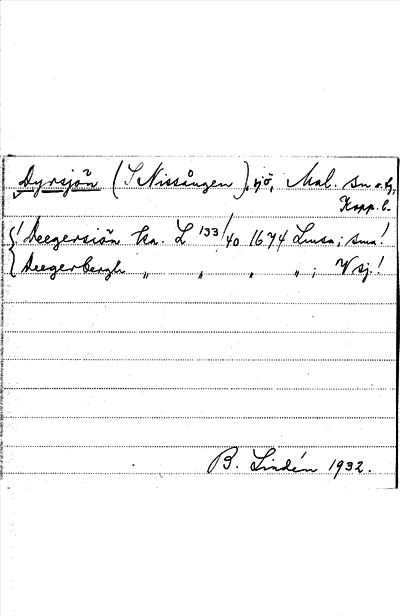 Dyrsjön (S Nissången), sjö, Mal. sn o. tg,
Kopp. l.
! Deegersiön ka. L 133/40 1674 Limsa; sma!
Deegerbergh " " " "; V sj.!
B. Lindén 1932.